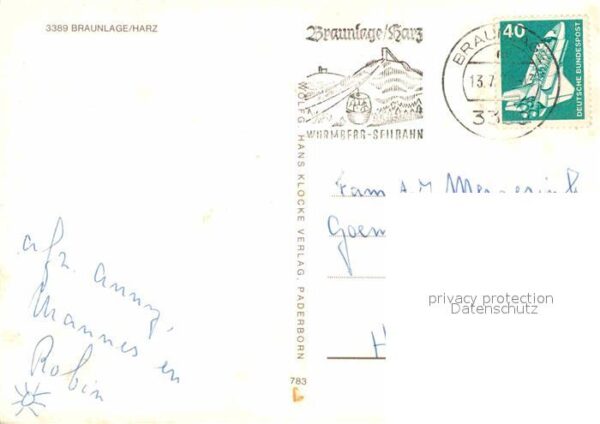 3389 BRAUNLAGE/HARZ
Braunlage/Harz
WURMBERG-SEILBAHN
BRAUNLA
13.7.
33
40
DEUTSCHE BUNDESPOST
WOLFG. HANS KLOCKE VERLAG, PADERBORN
783
Fam A.J.
Goem
H
afz. anny,
Mannes en
Robin
privacy protection
Datenschutz